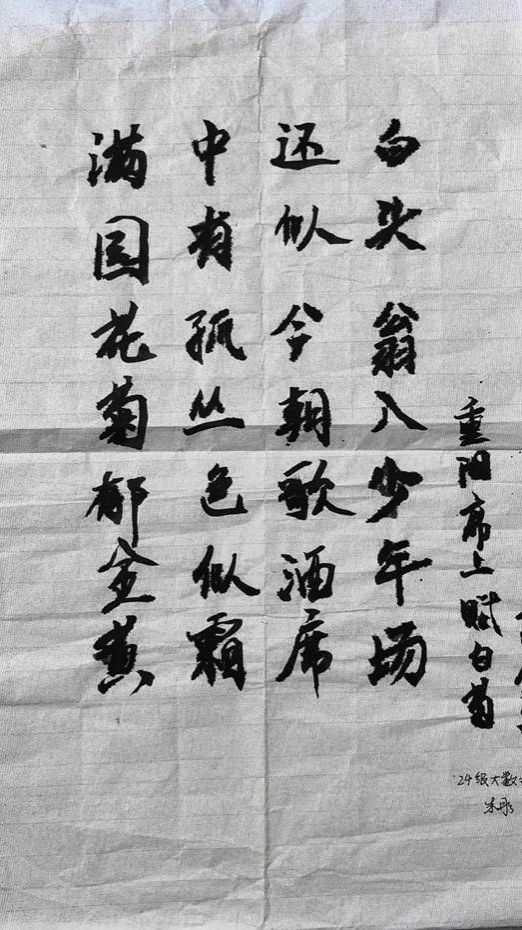 满园花菊郁金黄
中有孤丛色似霜
还似今朝歌酒席
白头翁入少年场
重阳席上赋白菊
24级大数